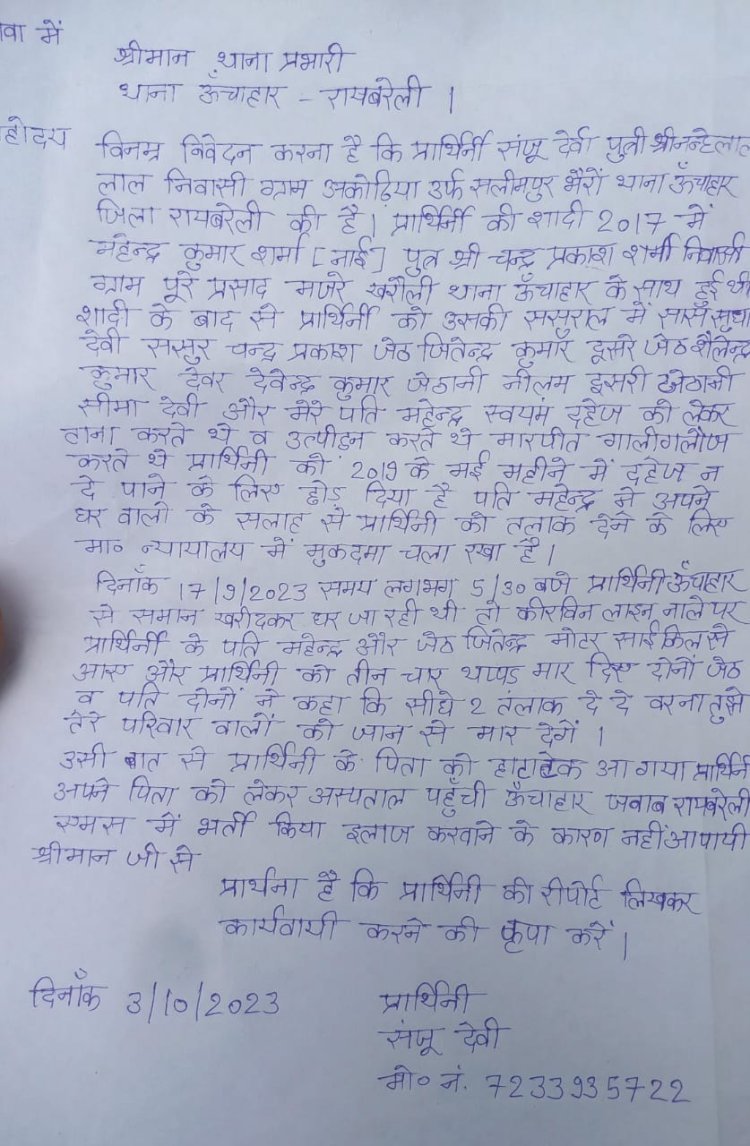 वा में
श्रीमान थाना प्रभारी
थाना ऊँचाहार - रायबरेली ।
होदय विनम्र निवेदन करना है कि प्रार्थिनी संजू देवी पुत्री श्री नन्हेलाल
लाल निवासी ग्राम अकोढ़िया उर्फ सलीमपुर भैरों थाना ऊँचाहार
जिला रायबरेली की है। प्रार्थिनी की शादी 2017 में
महेन्द्र कुमार शर्मा [नाई] पुत्र श्री चन्द्र प्रकाश शर्मा निवासी
ग्राम पूरे प्रसाद मजरे खरौली थाना ऊँचाहार के साथ हुई थी
शादी के बाद से प्रार्थिनी को उसकी ससुराल में सास सुधा
देवी ससुर चन्द्र प्रकाश जेठ जितेन्द्र कुमार दूसरे जेठ शैलेन्द्र
कुमार देवर देवेन्द्र कुमार जेठानी नीलम दूसरी जेठानी
सीमा देवी और मेरे पति महेन्द्र स्वयमं दहेज को लेकर
ताना करते थे व उत्पीड़न करते थे मारपीत गालीगलौज
करते थे प्रार्थिनी को 2019 के मई महीने में दहेज न
दे पाने के लिए छोड़ दिया है पति महेन्द्र ने अपने
घर वालो के सलाह से प्रार्थिनी को तलाक देने के लिए
मा० न्यायालय में मुकदमा चला रखा है।
दिनाँक 17/9/2023 समय लगभग 5/30 बजे प्रार्थिनी ऊँचाहार
से समान खरीदकर घर जा रही थी तो कीरविन लाइन नाले पर
प्रार्थिनी के पति महेन्द्र और जेठ जितेन्द्र मोटर साईकिल से
आए और प्रार्थिनी को तीन चार थप्पड़ मार दिए दोनों जेठ
व पति दोनों ने कहा कि सीधे 2 तलाक दे दे वरना तुझे
तेरे परिवार वालों को जान से मार देगें ।
उसी बात से प्रार्थिनी के पिता को हाटाटेक आ गया प्रार्थिनी
अपने पिता को लेकर अस्पताल पहुँची ऊँचाहार जवाब रायबरेली
एमस में भर्ती किया इलाज करवाने के कारण नहीं आ पायी
श्रीमान जी से
प्रार्थना है कि प्रार्थिनी की रीपोर्ट लिखकर
कार्यवायी करने की कृपा करें।
दिनाँक 3/10/2023 प्रार्थिनी
संजू देवी
मो० नं. 7233935722